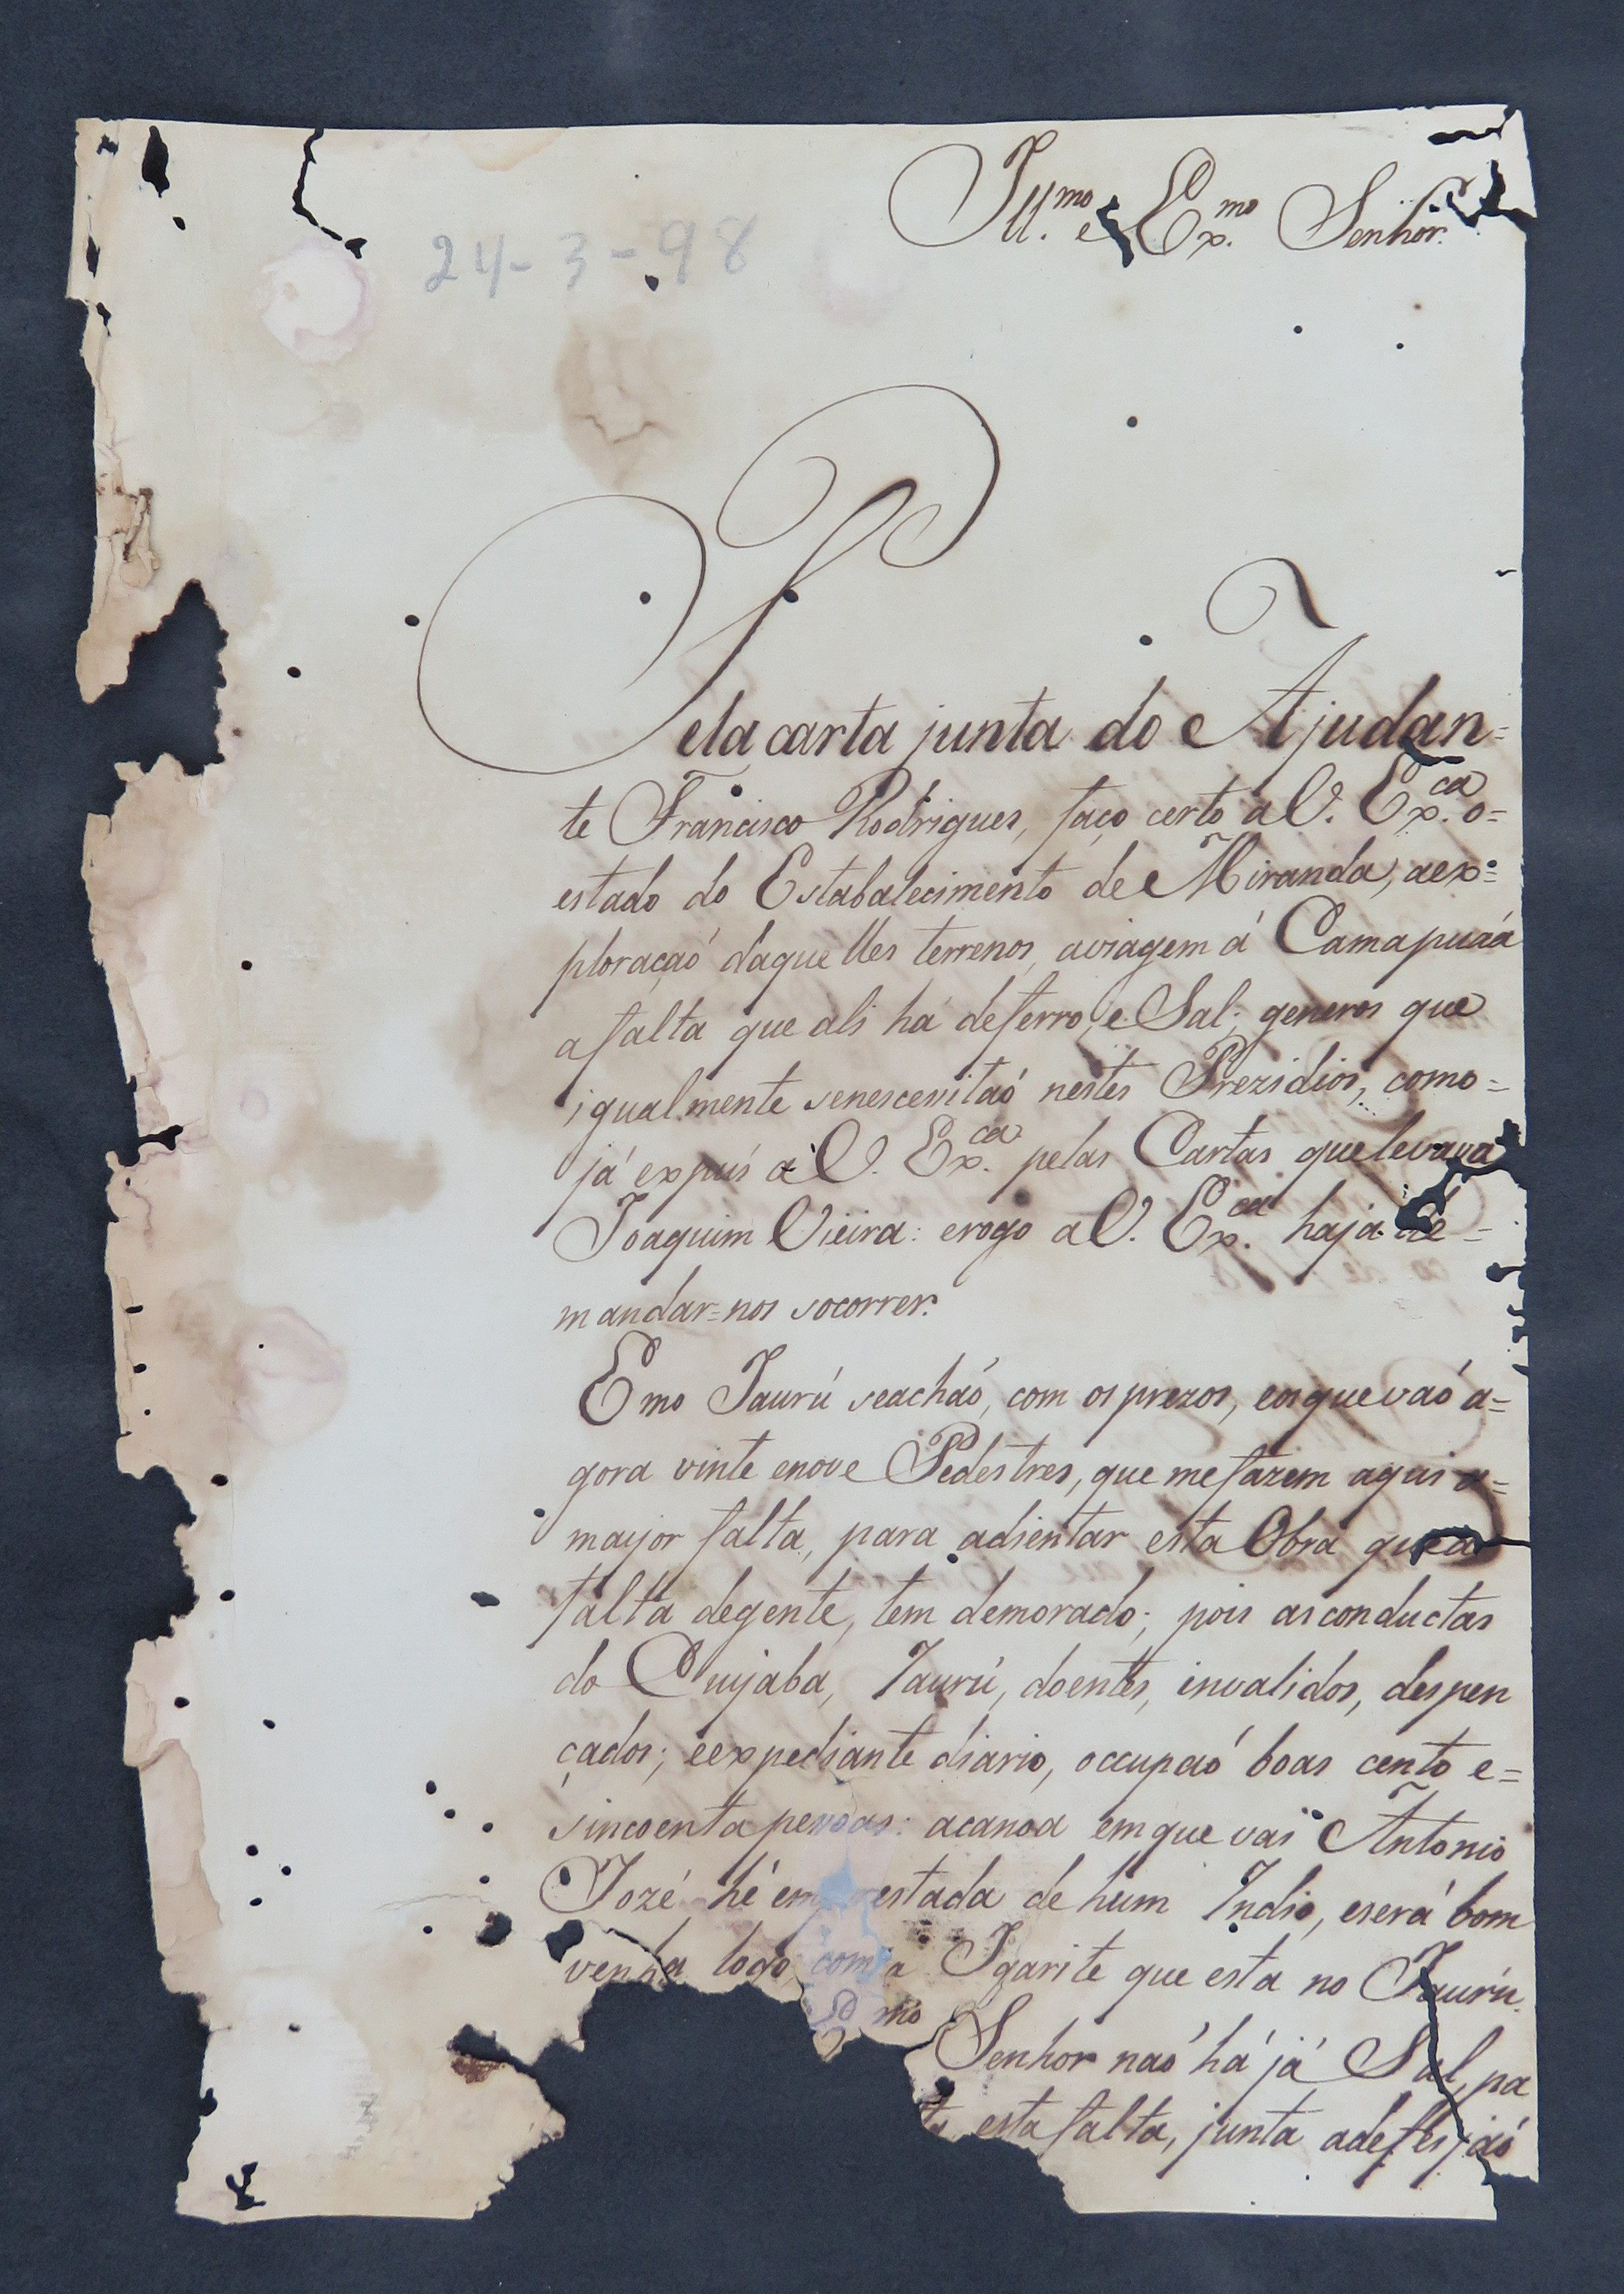 Ill.mo e Ex.mo Senhor.
24-3-98
Pela carta junta do Ajudan=
te Francisco Rodrigues, faço certo a V. Ex.ca o=
estado do Estabalecimento de Miranda, aex=
ploraçaó daquelles terrenos, aviagem á Camapuáá
afalta que ali há deferro, e Sal; generos que
igualmente senescessitaó nestes Prezidios, como=
já expús a V. Ex.ca pelas Cartas quelevava
Joaquim Vieira: erogo a V. Ex.ca haja de=
mandar=nos socorrer.
E mo Jaurú seachaó, com osprezos, eosquevaó a=
gora vinte enove Pedestres, que mefazem aqui a=
mayor falta, para adientar esta Obra quea
falta degente, tem demorado; pois asconductas
do Cuyaba, Jaurú, doentes, invalidos, despen
çados; eexpediante diario, occupaó boas cento e=
sincoenta pessoas: acanoa emque vai Antonio
Jozé hé emprestada de hum Indio, eserá bom
venha logo com a Igarite que esta no Jaurú.
mo Senhor naó há já Sal, pa
esta falta, junta adefeijaó